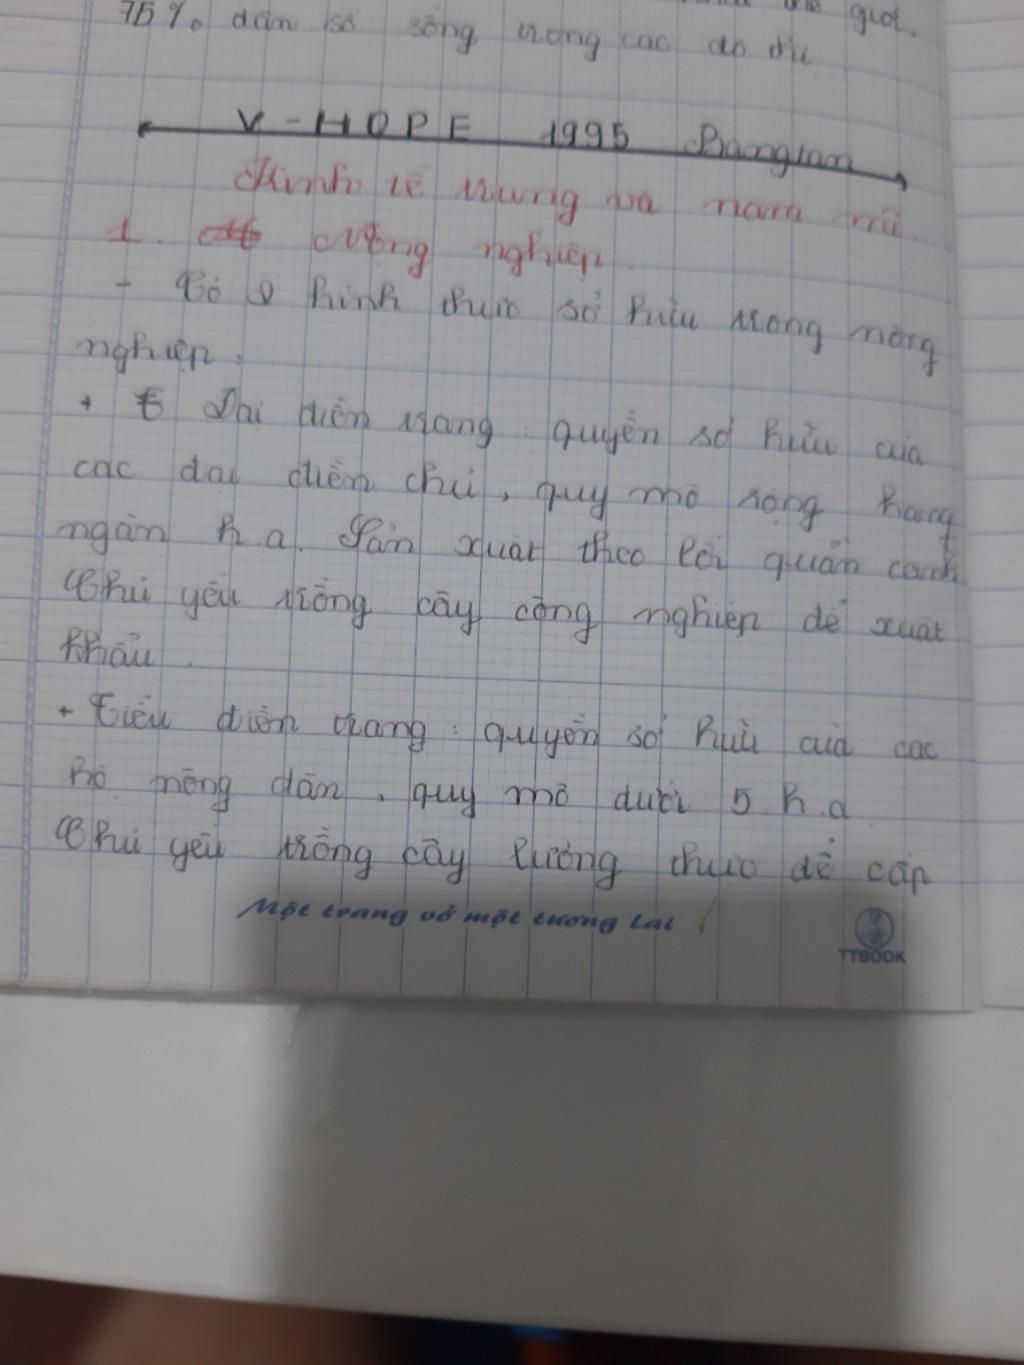 giới.
75% dân số sống trong các đô thị
V-HOPE 1995 Bangtan
Kinh tế trung và nam mĩ.
1. công nghiệp
- Có 2 hình thức sở hữu trong nông
nghiệp.
+ Đại điền trang: quyền sở hữu của
các đại điền chủ, quy mô rộng hàng
ngàn h.a. Sản xuất theo lối quản canh
Chủ yếu trồng cây công nghiệp để xuất
khẩu.
+ Tiểu điền trang: quyền sở hữu của các
hộ nông dân, quy mô dưới 5 h.a
Chủ yếu trồng cây lương thực để cấp
Một trang vở một tương lai
TTBOOK